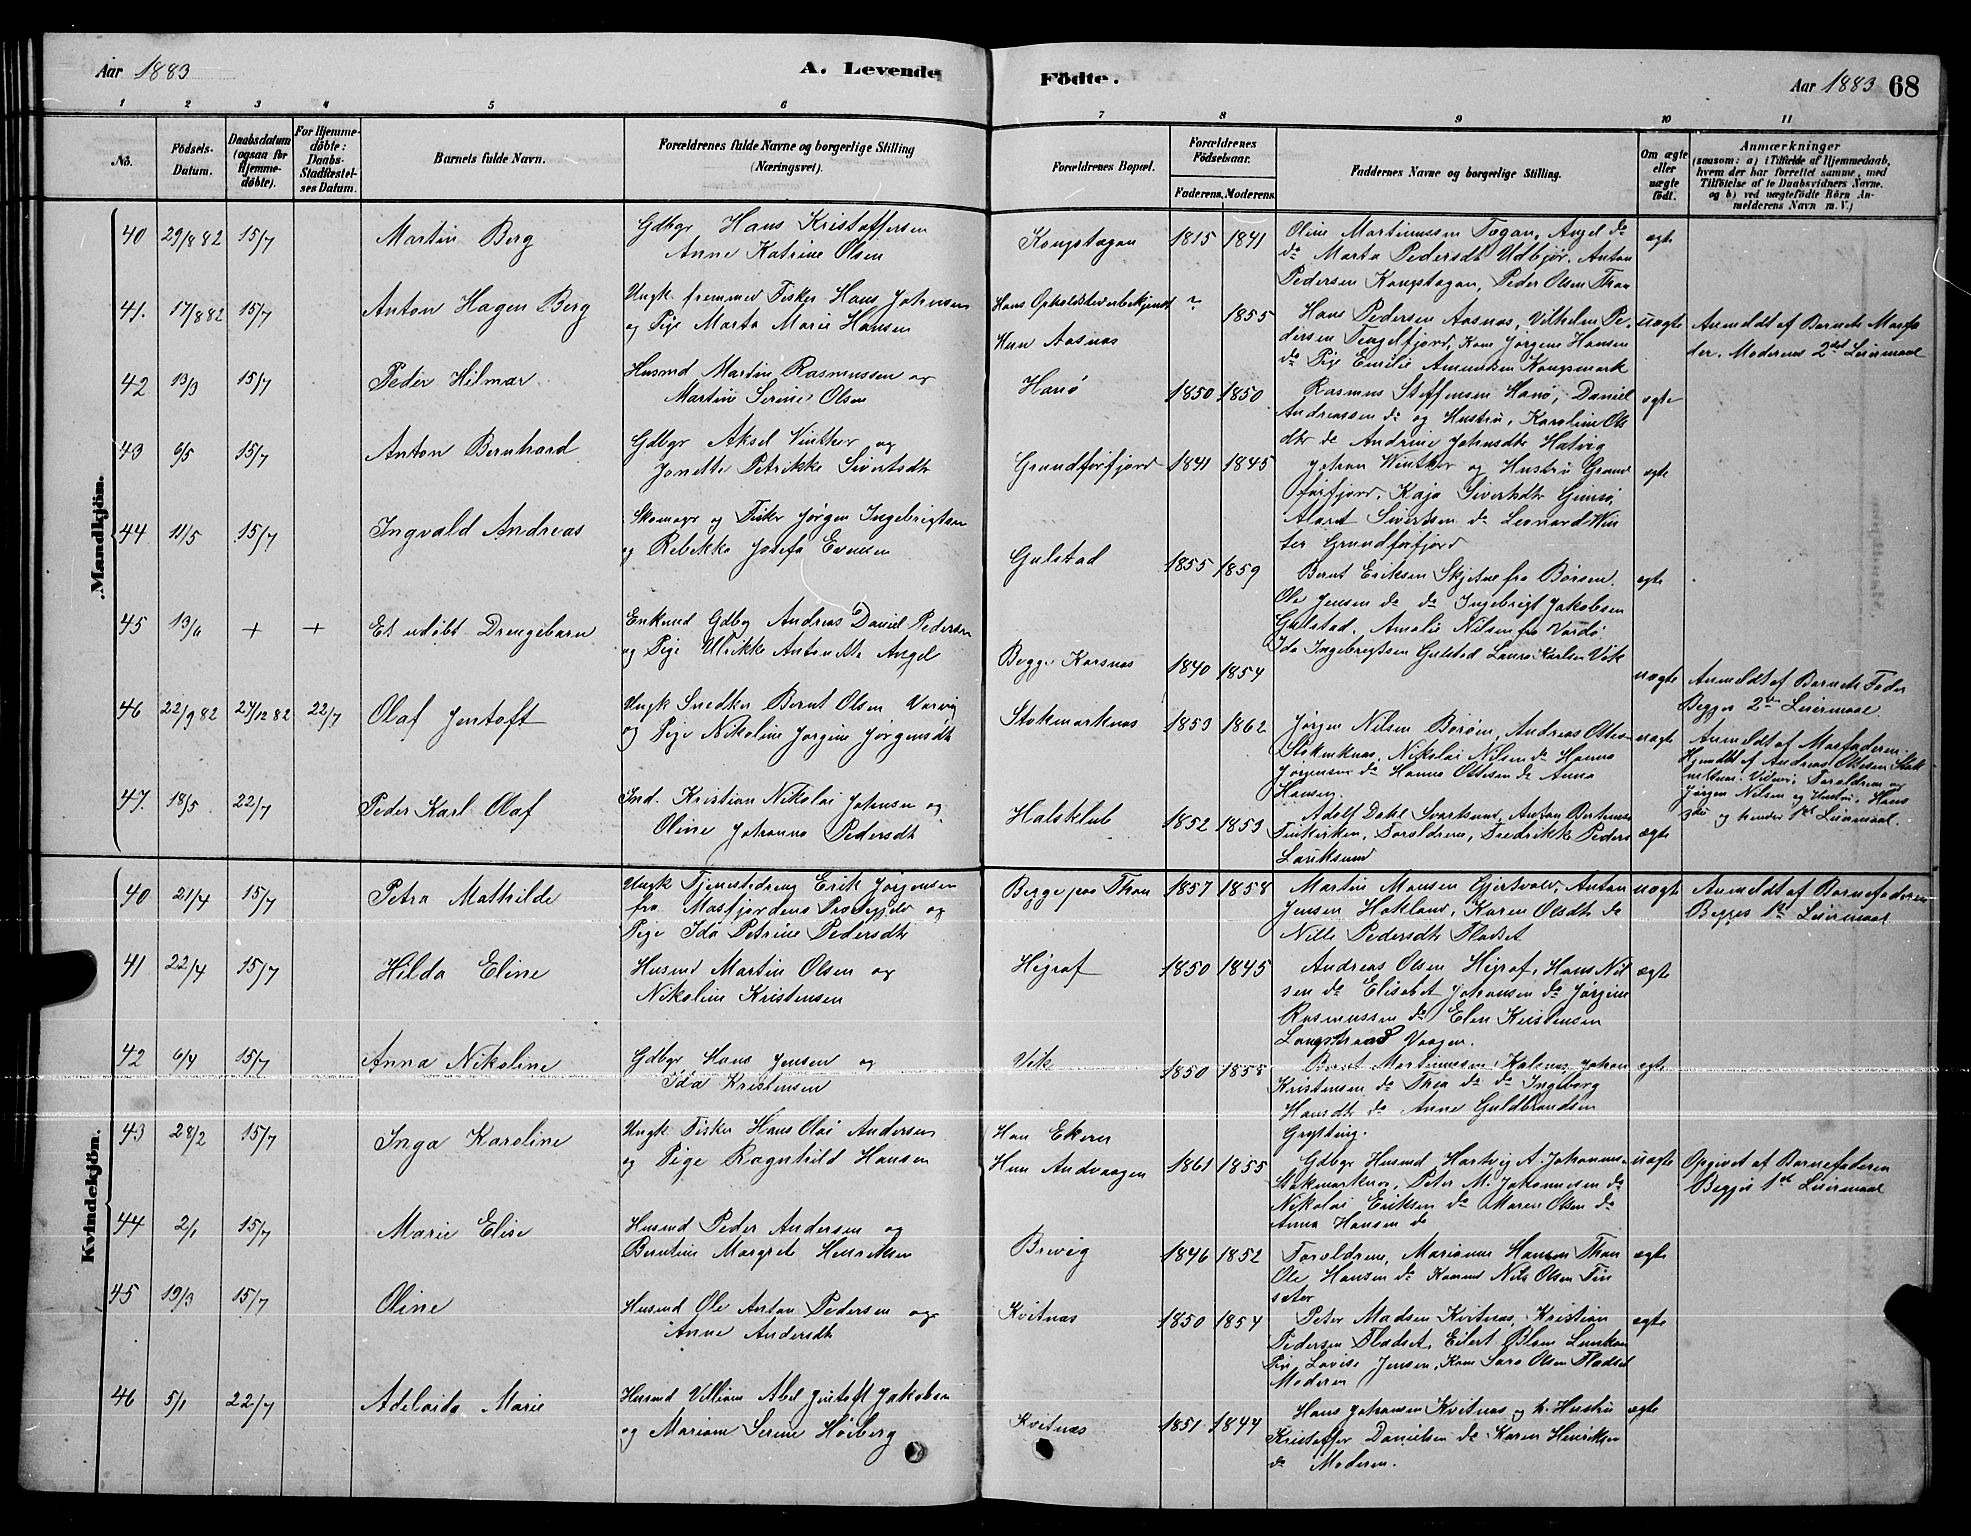 Aar 1883
A. Levende
Födte.
Aar 1883 68
1 2 3 4 5 6 7 8 9 10 11
No.
Födsels-
Datum.
Daabsdatum
(ogsaa for
Hjemme-
döbte).
For Hjemme-
döbte:
Daabs-
Stadfæstel-
ses Datum.
Barnets fulde Navn.
Forældrenes fulde Navne og borgerlige Stilling
(Næringsvei).
Forældrenes Bopæl.
Forældrenes
Födselsaar.
Faderens. Moderens.
Faddernes Navne og borgerlige Stilling.
Om ægte
eller
uægte
födt.
Anmærkninger
(saasom: a) i Tilfælde af Hjemmedaab,
hvem der har forrettet samme, med
Tilföielse af to Daabsvidners Navne.
og b) ved uægtefödte Börn An-
melderens Navn m. V.)
Mandkjön.
40 29/8 82 15/7 Martin Berg
Gdbgr Hans Kristoffersen
Anne Katrine Olsen
Kongstagan 1815 1841
Oline Martinussen Tøgan, Angel do
do Marta Pedersdt Udbjør, Anton
Pedersen Kongstagan, Peder Olsen Thaa
ægte
41. 17/8 82 15/7 Anton Hagen Berg
Ungk. fremmed Fisker Hans Johnsen
og Pige Marta Marie Hansen
Hans Opholdsted ubekjendt ?
Hun Aasnæs 1855
Hans Pedersen Aasnæs, Vilhelm Pe-
dersen Tengelfjord, Kone Jørgine Hansen
do Pige Emilie Amundsen Kongsmark
uægte
Anmeldt af Barnets Morfa
der. Moderens 2det Leiermaal
42 13/3 15/7 Peder Hilmar
Husmd Martin Rasmussen og
Martine Serine Olsen
Hanø 1850 1850
Rasmus Steffensen Hanø, Daniel
Andreassen do og Hustru, Karoline Ols
dtr do Andrine Johnsdtr Hatvig
ægte
43 6/5 15/7 Anton Bernhard
Gdbgr Aksel Vinther og
Jonette Petrikke Sivertsdtr
Grundforfjord 1841 1845
Johan Winther og Hustru Grund
forfjord, Kaja Sivertsdtr Gimsø,
Alaret Sivertsen do Leonard Win
ter Grundforfjord
ægte
44 11/5 15/7 Ingvald Andreas
Skomagr og Fisker Jørgen Ingebrigtsen
og Rebekka Josefa Evensen
Gulstad 1855 1859
Bernt Eriksen Skjetne fra Børsen.
Ole Jensen do do Ingebrigt Jakobsen
Gulstad, Amalie Nilsen fra Vardø
Ida Ingebrigtsen Gulstad Laura Karlsen Vik
ægte
45 13/6 + + Et udøbt Drengebarn
Enkemd Gdbg Andreas Daniel Pedersen
og Pige Ulrikke Antonette Angel
Begge Korsnæs 1840 1854
uægte
Anmeldt af Barnets Fader
Begges 2det Leiermaal
46 22/9 82 27/12 82 22/7 Olaf Jentoft
Ungk Snedker Bernt Olsen Vorvig
og Pige Nikoline Jørgine Jørgensdt
Stokmarknæs 1853 1862
Jørgen Nilsen Børøen, Andreas Ottesen
Stokmknæs, Nikolai Nilsen do Hanna
Jørgensen do Hanna Ottesen do Anna
Hansen.
uægte
Anmeldt af Morfaderen.
Hjmdt af Andreas Ottesen Stok
mknæs. Vidner, Foreldrene og
Jørgen Nilsen og Hustru. Hans
2det og hendes 1ste Leiermaal.
47. 18/5 22/7 Peder Karl Olaf
Ind. Kristian Nikolai Johnsen og
Oline Johanna Pedersdt
Halsklub 1852 1853
Adolf Dahl Svartsund, Anton Berthens
Finkirken, Foreldrene, Fredrikke Peders
Lauksund
ægte
Kvindekjön.
40 21/4 15/7 Petra Mathilde
Ungk Tjenestedreng Erik Jørgensen
fra Masfjordens Præstegjeld og
Pige Ida Petrine Pedersdtr
Begge paa Thaa 1857 1858
Martin Monsen Gjertvold, Anton
Jensen Hokland, Karen Olsdtr do
Nille Pedersdtr Fladset
uægte
Anmeldt af Barnefaderen
Begges 1ste Leiermaal
41 22/4 15/7 Hilda Eline
Husmd Martin Olsen og
Nikoline Kristensen
Higraf 1850 1845
Andreas Olsen Higraf, Hans Nil
sen do Elisabet Johansen do Jørgine
Rasmussen do Elen Kristensen
Langstrand Vaagen.
ægte
42 6/4 15/7 Anna Nikoline
Gdbgr Hans Jensen og
Ida Kristensen
Vik 1850 1855
Bernt Martinussen Kalsnæs, Johan
Kristensen do Thea do do Ingeborg
Hansdtr do Anne Guldbrandsen
Grytting.
ægte
43 28/2 15/7 Inga Karoline
Ungk Fisker Hans Olai Andersen
og Pige Ragnhild Hansen
Han Ekeren
Hun Andvaagen 1861 1855
Gdbgr Husmd Hartvig A. Johanns.
Stokmarknæs, Peter M. Johannesen do
Nikolai Eriksen do Maren Olsen do
Anna Hansen do
uægte
Opgivet af Barnefaderen
Begges 1ste Leiermaal
44 2/1 15/7 Marie Elise
Husmd Peder Andersen og
Berntine Margrete Henriksen
Brevig 1846 1852
Foreldrene, Marianne Hansen Thaa
Ole Hansen do Konrad Nils Olsen Fin
sæter
ægte
45 19/3 15/7 Oline
Husmd Ole Anton Pedersen og
Anne Andersdt
Kvitnæs 1850 1854
Peter Madsen Kvitnæs, Kristian
Pedersen Fladset, Eilert Blom Lunkan
Pige Lovise Jensen, Kone Sara Olsen Fladset
Moderen
ægte
46 5/1 22/7 Adelaide Marie
Husmd Villiam Abel Jentoft Jakobsen
og Mariane Serine Høiberg
Kvitnæs 1851 1844
Hans Johansen Kvitnæs og h. Hustru
Kristoffer Danielsen do Karen Henriksen
do Moderen.
ægte